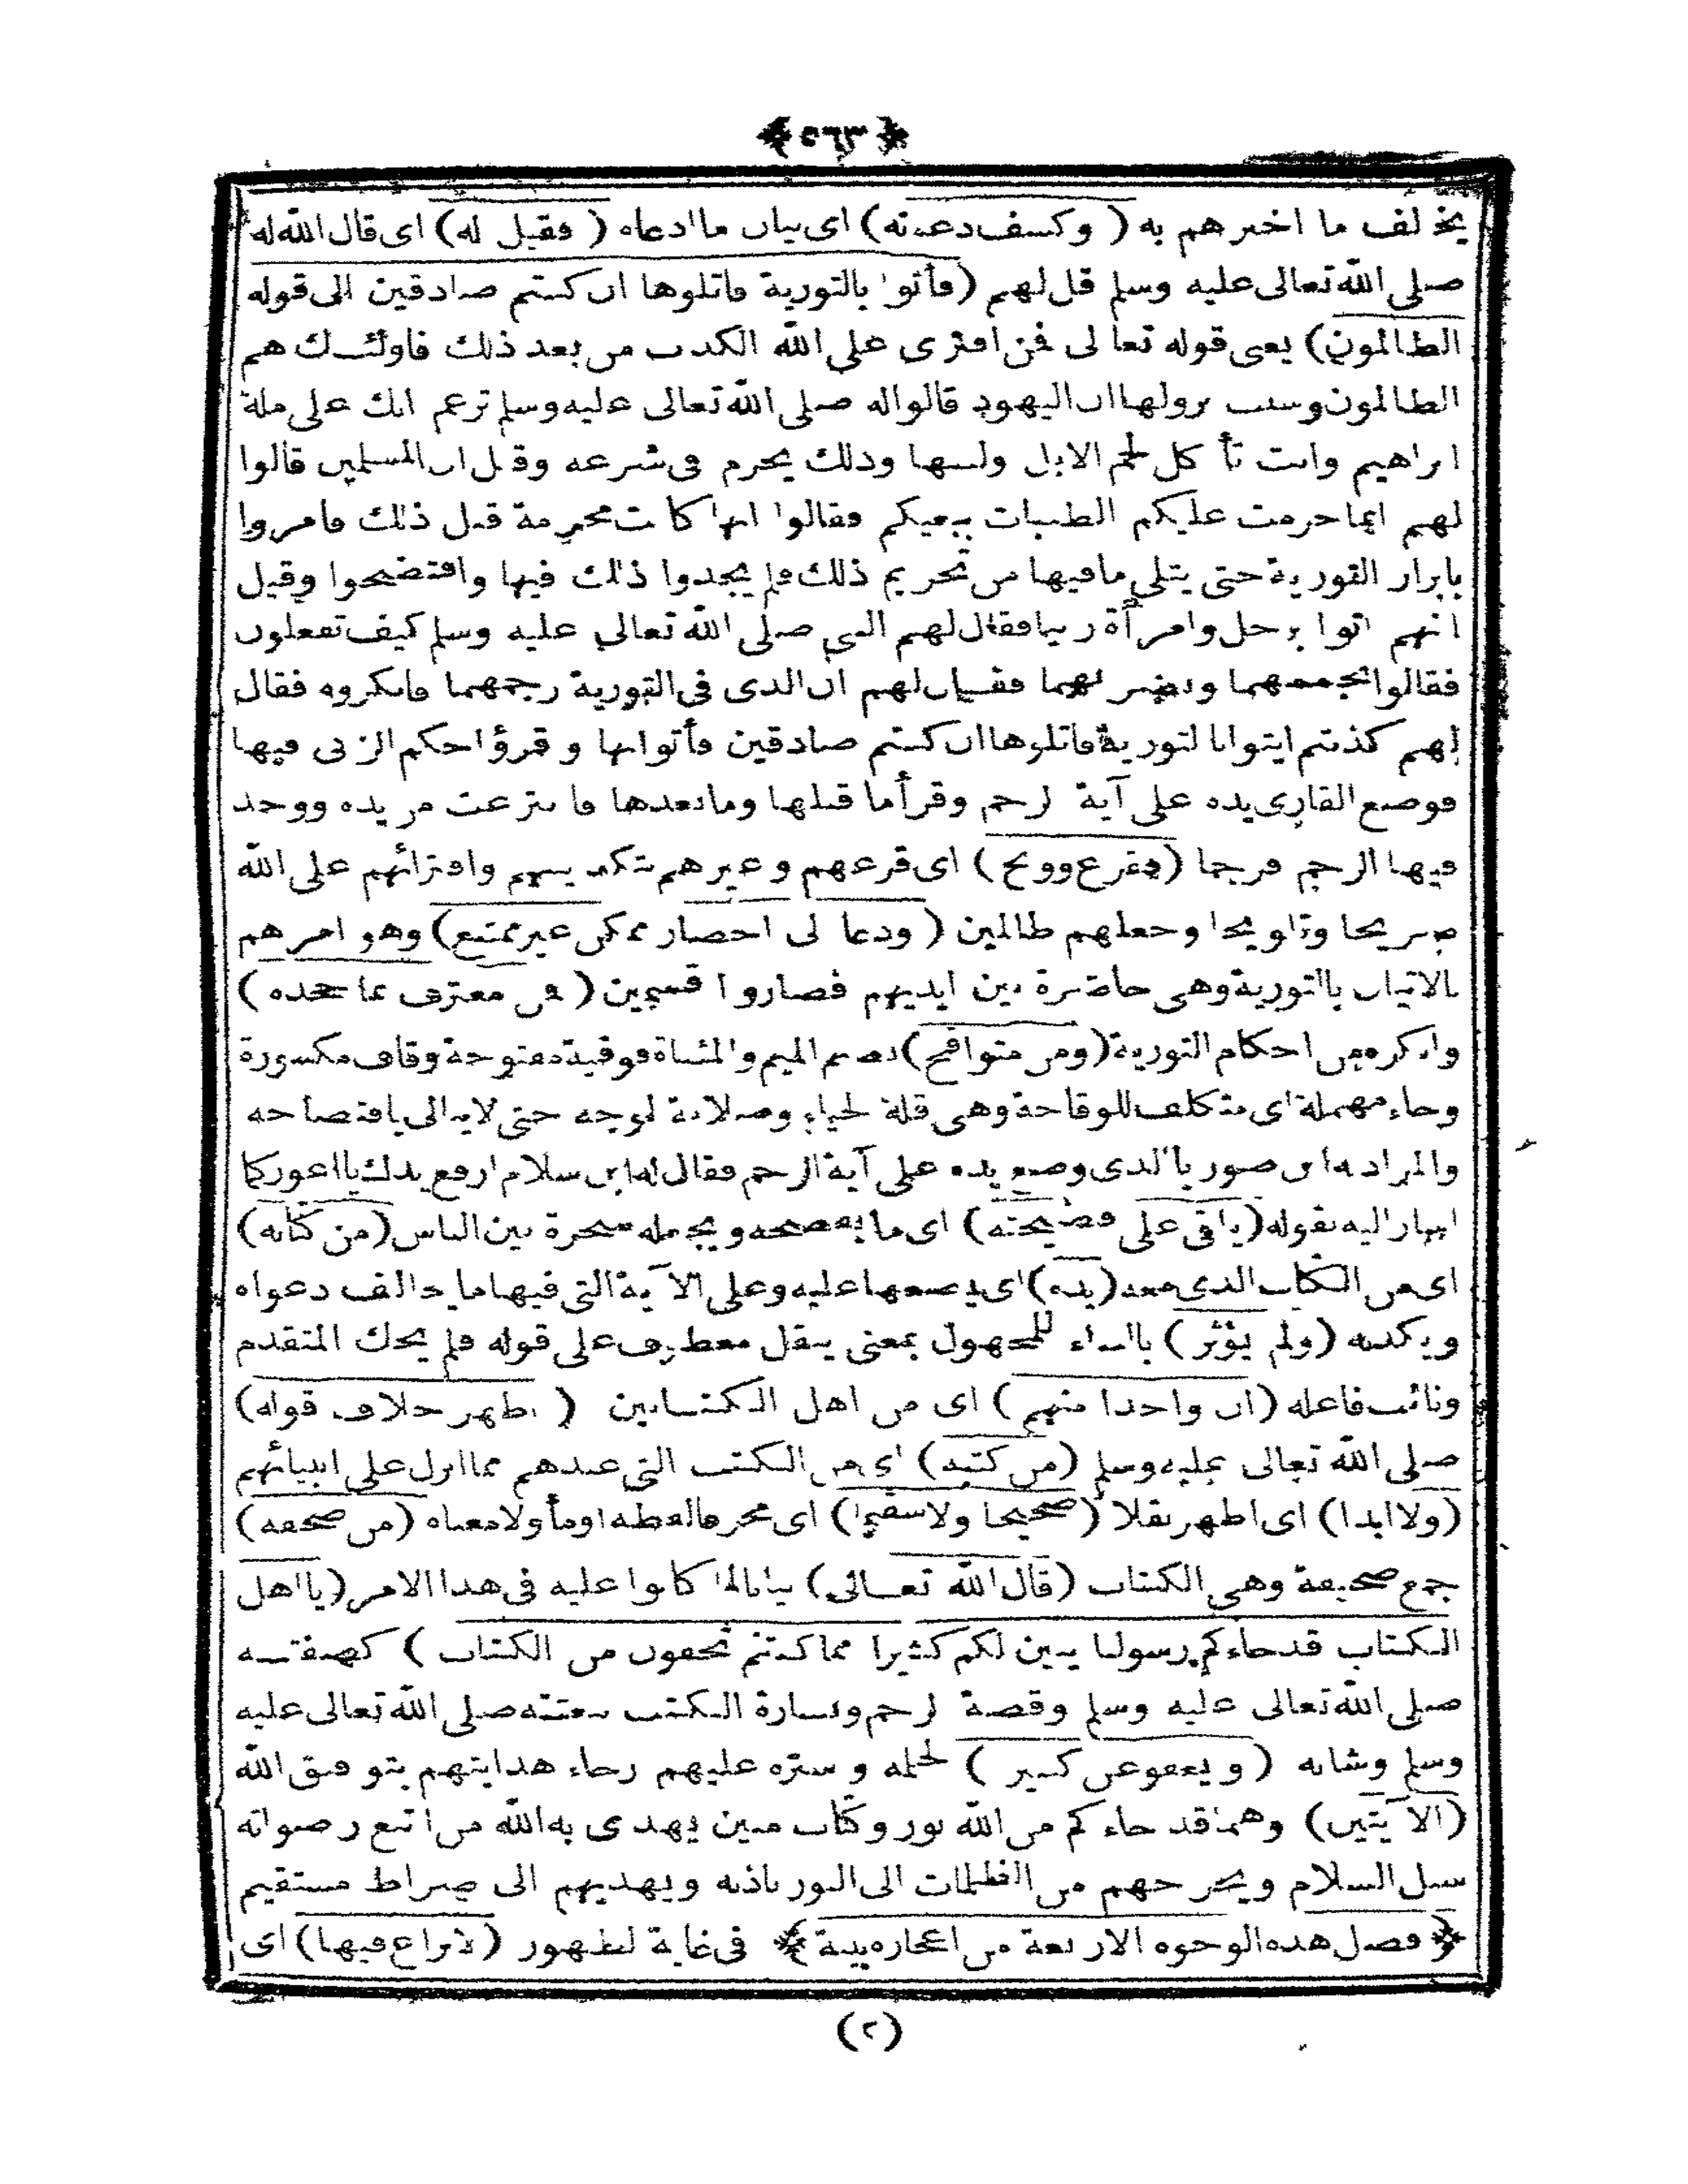 ﴿ ٥٦٣ ﴾
يخالف ما اخبرهم به (وكشف دعوته) اى بيان ما ادعاه (فقيل له) اى قال الله له
صلى الله تعالى عليه وسلم قل لهم (فأتوا بالتورية فاتلوها ان كنتم صادقين الى قوله
الظالمون) يعنى قوله تعالى فمن افترى على الله الكذب من بعد ذلك فاولئك هم
الظالمون وسبب نزولها ان اليهود قالوا له صلى الله تعالى عليه وسلم تزعم انك على ملة
ابراهيم وانت تأكل لحم الابل ولبنها وذلك يحرم فى شرعه وقيل ان المسلمين قالوا
لهم انما حرمت عليكم الطيبات ببغيكم فقالوا انها كانت محرمة قبل ذلك فامروا
بابراز التورية حتى يتلى ما فيها من تحريم ذلك فلم يجدوا ذلك فيها وافتضحوا وقيل
انهم اتوا برجل وامرأة زنيا فقال لهم النبى صلى الله تعالى عليه وسلم كيف تفعلون
فقالوا نحممهما ونضربهما فقال لهم ان الذى فى التورية رجمهما فانكروه فقال
لهم كذبتم ايتوا بالتورية فاتلوها ان كنتم صادقين فأتوا بها وقرؤا حكم الزنى فيها
فوضع القارى يده على آية الرجم وقرأ ما قبلها وما بعدها فانتزعت من يده ووجد
فيها الرجم فرجما (فقرع ووبخ) اى قرعهم وعيرهم بتكذيبهم وافترائهم على الله
صريحا وتلويحا وجعلهم ظالمين (ودعا الى احضار ممكن غير ممتنع) وهو امرهم
بالاتيان بالتورية وهى حاضرة بين ايديهم فصاروا قسمين (فمن معترف بما جحده)
وانكره من احكام التورية (ومن متواقح) بضم الميم والمثناة فوقية مفتوحة وقاف مكسورة
وحاء مهملة اى متكلف للوقاحة وهى قلة الحياء وصلابة الوجه حتى لا يبالى بافتضاحه
والمراد به ابن صوريا الذى وضع يده على آية الرجم فقال له ابن سلام ارفع يدك يا اعور كما
اشار اليه بقوله (يلقى على فضيحته) اى ما يفضحه ويجعله سخرة بين الناس (من كتابه)
اى من الكتاب الذى معه (يده) اى يضعها عليه وعلى الآية التى فيها ما يخالف دعواه
ويكذبه (ولم يؤثر) بالبناء للمجهول بمعنى ينقل معطوف على قوله فلم يحك المتقدم
ونائب فاعله (ان واحدا منهم) اى من اهل الكتابين (اظهر خلاف قوله)
صلى الله تعالى عليه وسلم (من كتبه) اى من الكتب التى عندهم مما انزل على انبيائهم
(ولا ابدا) اى اظهر نقلا (صحيحا ولا سقيما) اى محرفا لفظه او مأولا معناه (من صحفه)
جمع صحيفة وهى الكتاب (قال الله تعالى) بيانا لما كانوا عليه فى هذا الامر (يا اهل
الكتاب قد جاءكم رسولنا يبين لكم كثيرا مما كنتم تخفون من الكتاب) كصفته
صلى الله تعالى عليه وسلم وقصة الرجم وبشارة الكتب ببعثته صلى الله تعالى عليه
وسلم وشانه (ويعفو عن كثير) لحلمه وستره عليهم رجاء هدايتهم بتوفيق الله
(الآيتين) وهما قد جاءكم من الله نور وكتاب مبين يهدى به الله من اتبع رضوانه
سبل السلام ويخرجهم من الظلمات الى النور باذنه ويهديهم الى صراط مستقيم
﴿ فصل هذه الوجوه الاربعة من اعجازه بينة ﴾ فى غاية الظهور (لا نزاع فيها) اى
(٢)